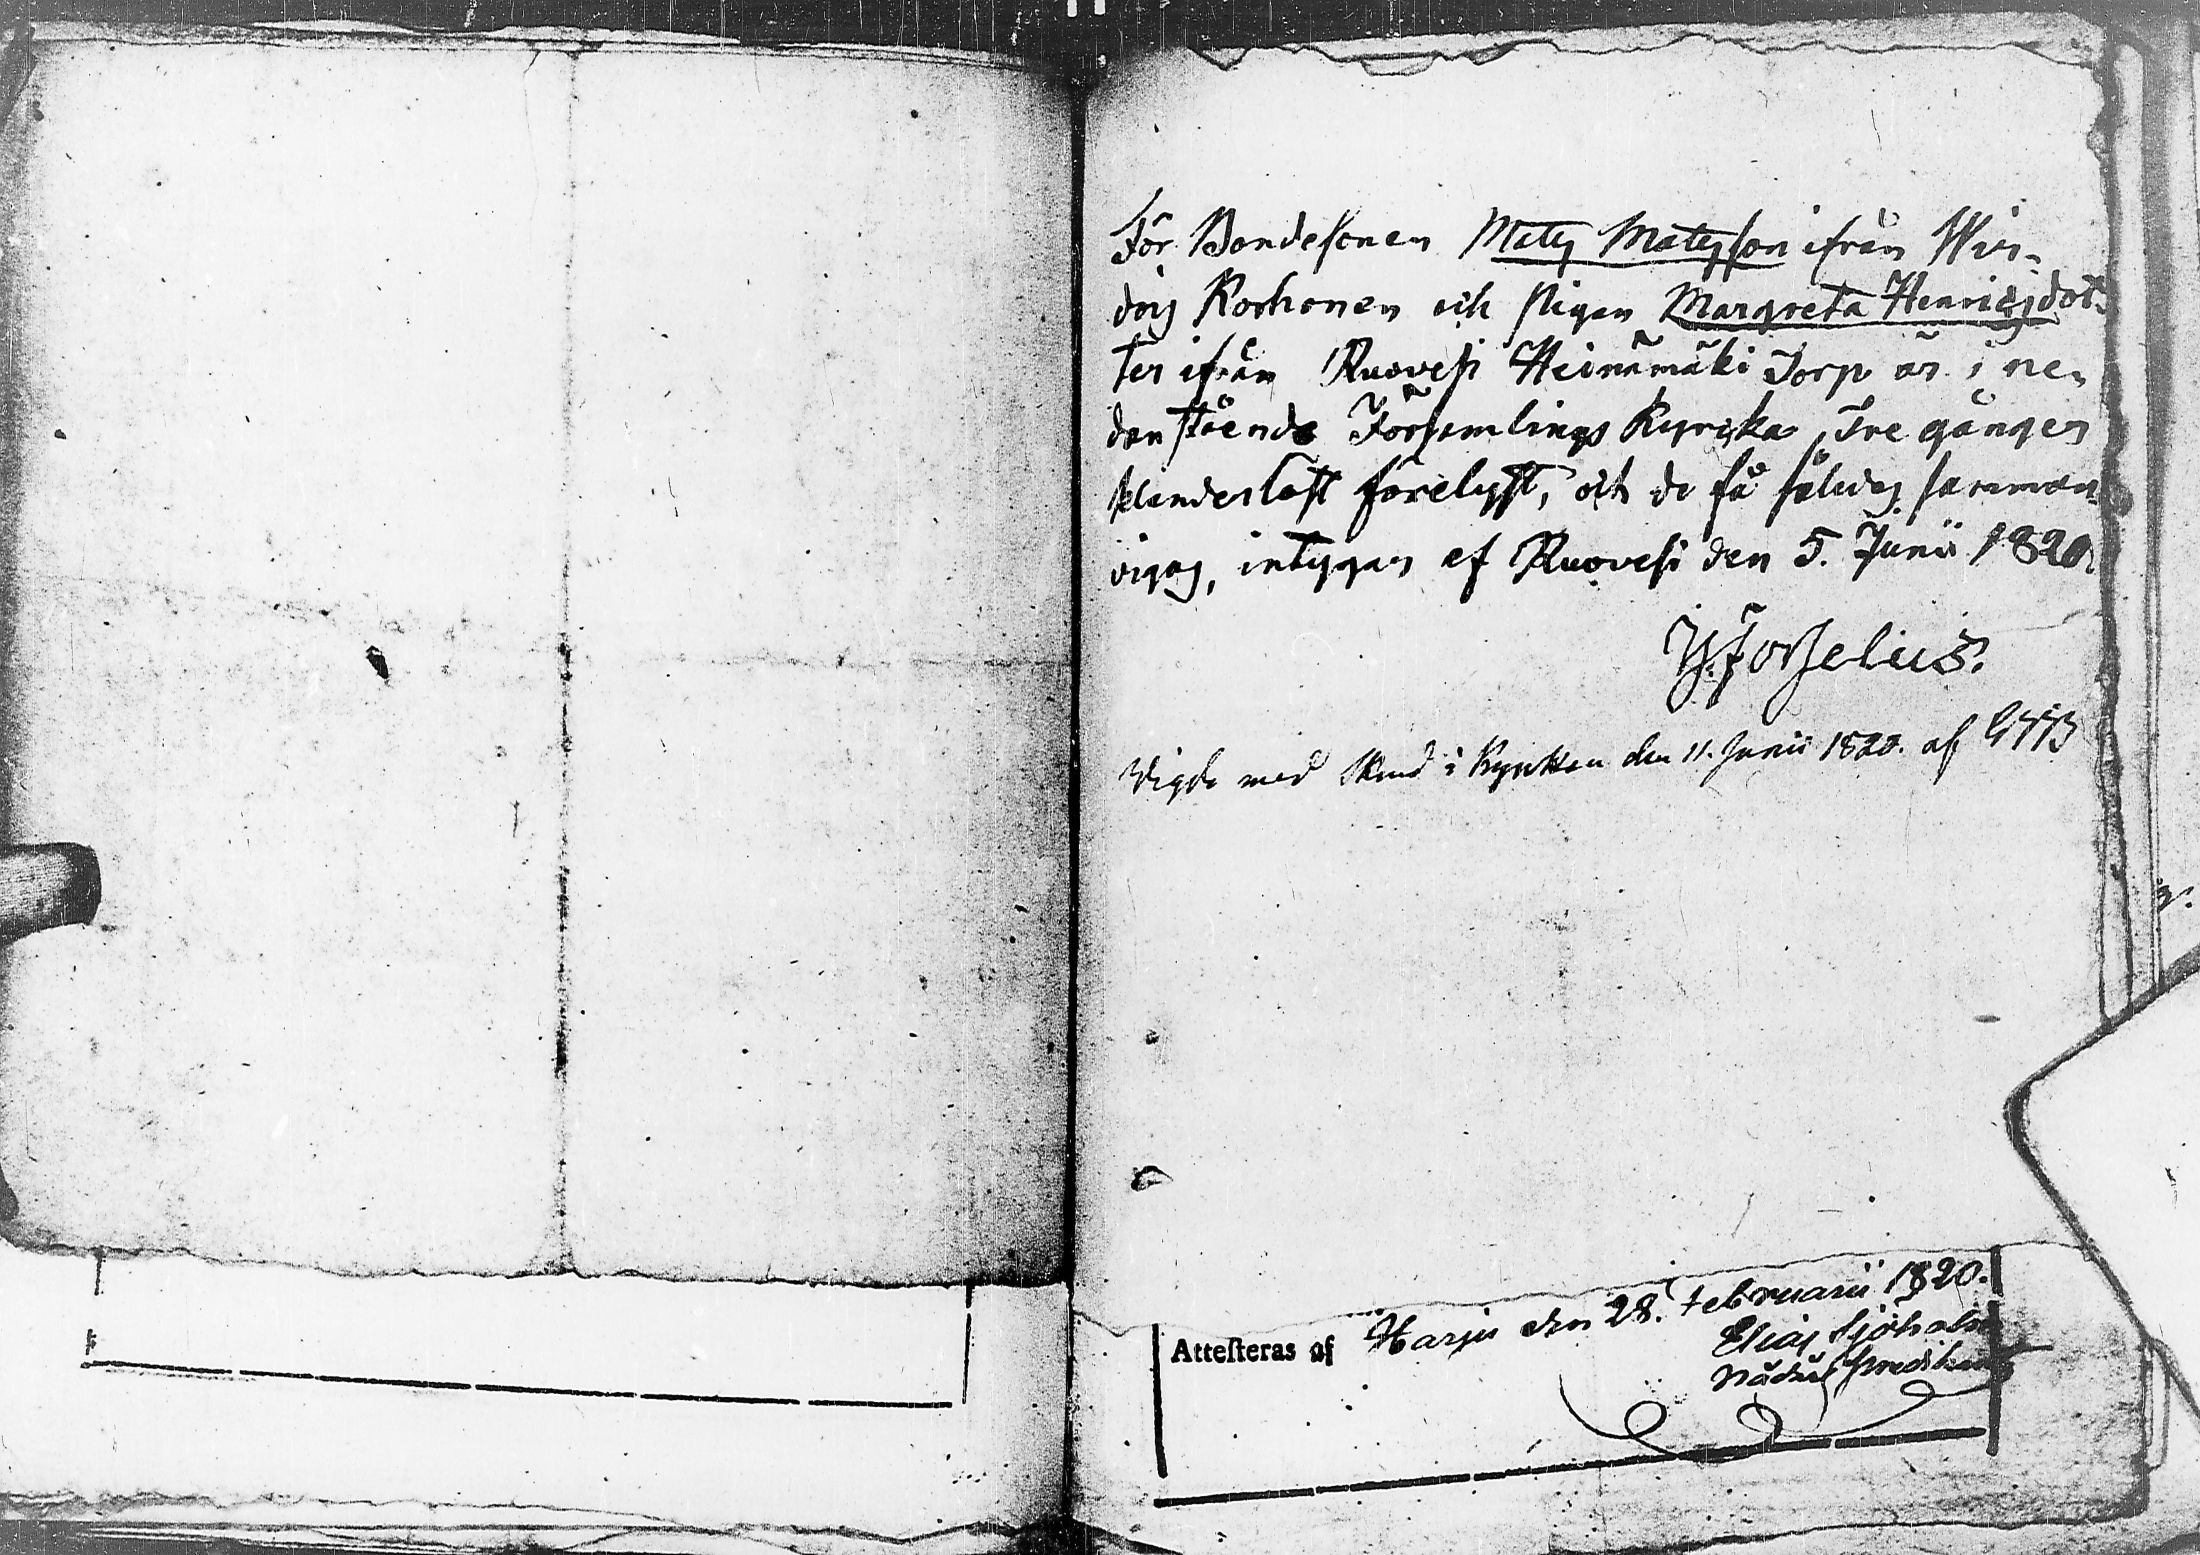 För Bondesonen Mats Matsson ifrån Wir-
dois Korhonen och Pigan Margreta Henricsdot-
ter ifrån Ruovesi Heinämäki Torp är i ne-
danstående Församlings Kyrcka Tre gånger
klanderlöst förelyst, och de få således samman-
vigas, intygar af Ruovesi den 5. Junii 1820.
Forselius.
Vigde med Brud i Kyrkan den 11. Junii 1820. af
Attesteras af Harju den 28. Februarii 1820.
Elias Sjöholm
Nåds Predikant